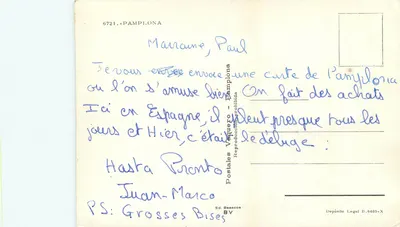 6721.-PAMPLONA
Marraine, Paul
Je vous envoie une carte de Pamplona
où l'on s'amuse bien On fait des achats
Ici en Espagne, il pleut presque tous les
jours et Hier, c'était le déluge!
Hasta Pronto
Juan-Marco
PS: Grosses Bises
Ed. 
BV
Postales Vaquero - Pamplona
Depósito Legal B.